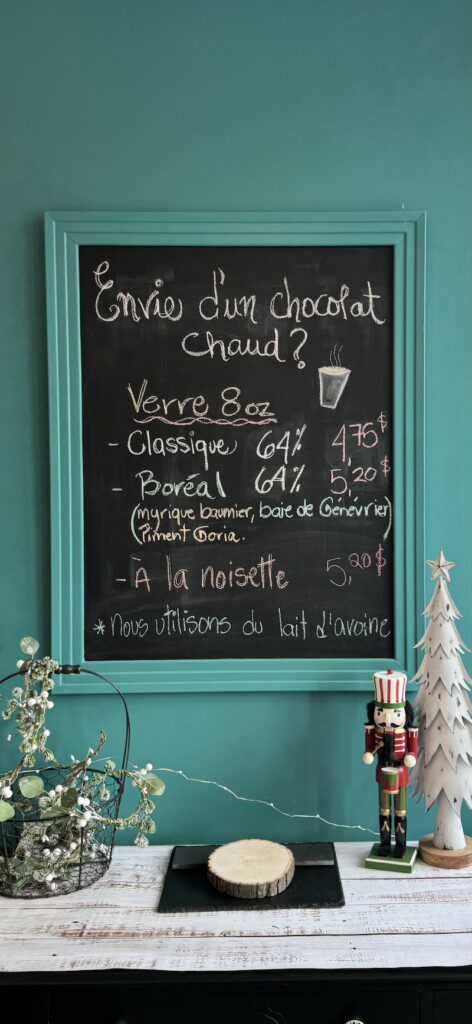 Envie d'un chocolat
chaud ?
Verre 8 oz
- Classique 64% 4,75$
- Boréal 64% 5,20$
(myrique baumier, baie de Génévrier)
Piment Goria.
- À la noisette 5,20$
* nous utilisons du lait d'avoine